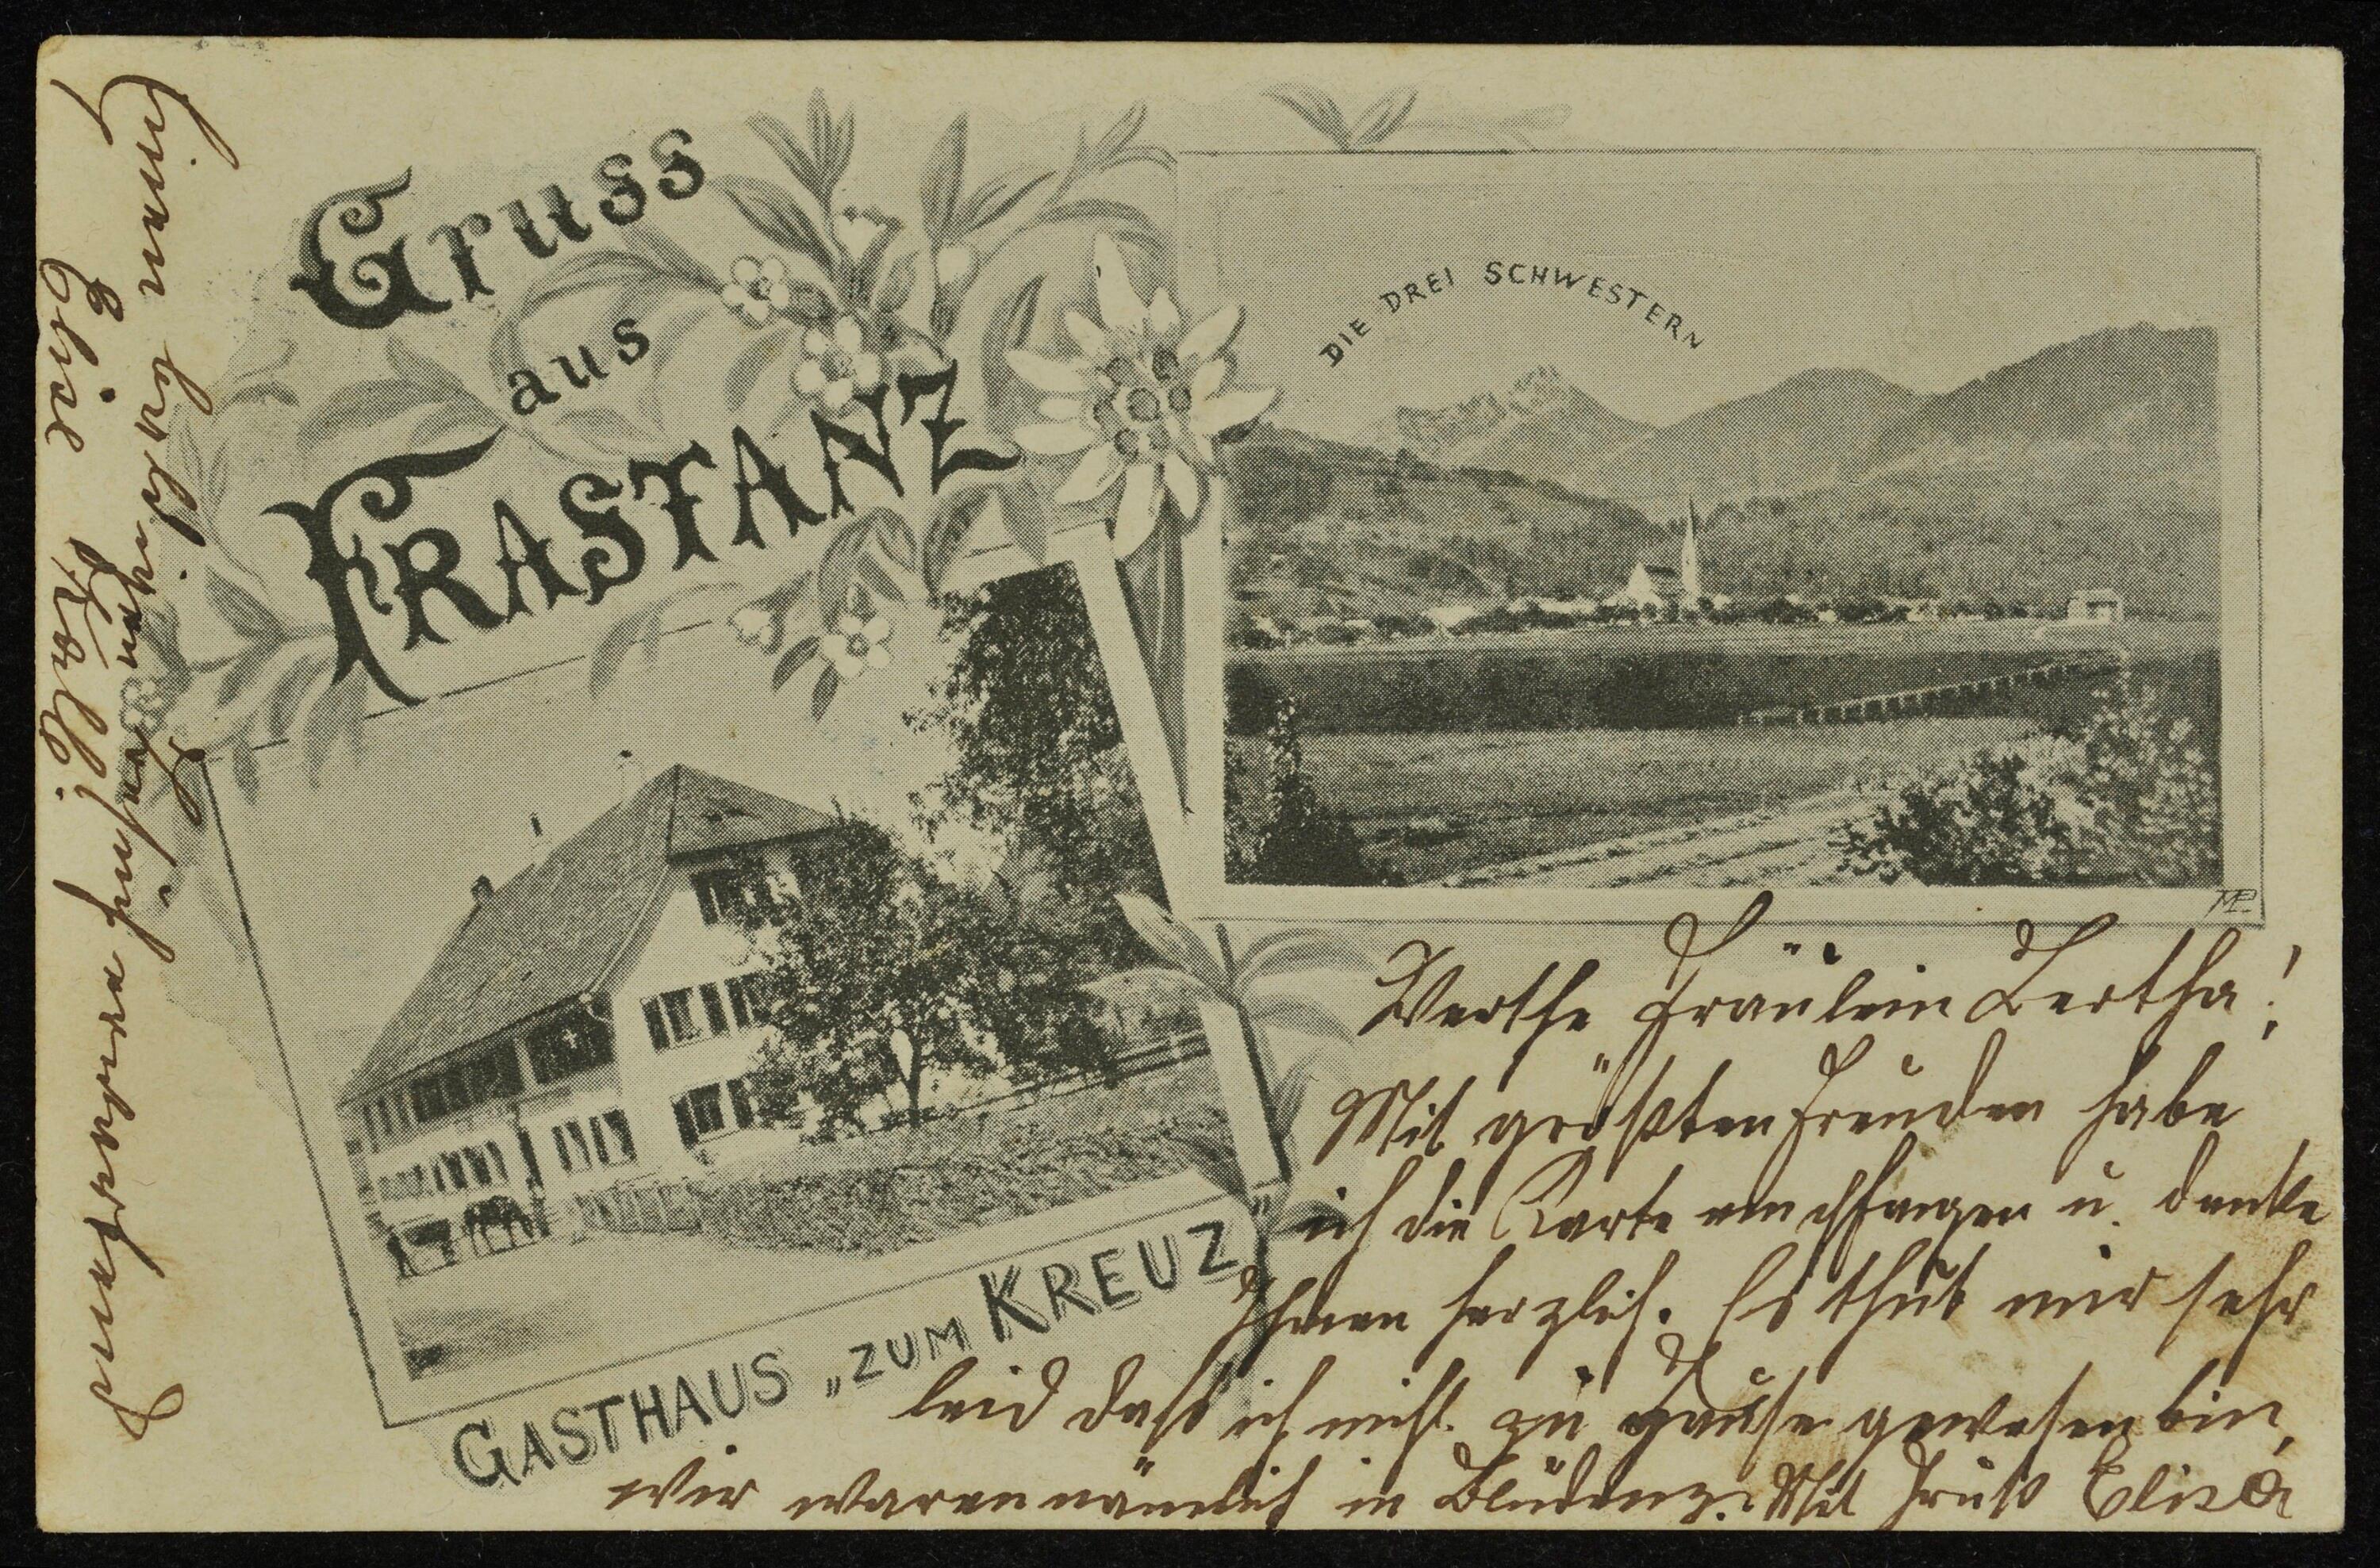 Gruss
aus
FRASTANZ
DIE DREI SCHWESTERN
MP
GASTHAUS „ZUM KREUZ"
Werthe Fräulein Bertha!
Mit größten Freuden habe
ich die Karte emchfangen u. danke
Ihnen herzlich. Es thut mir sehr
leid daß ich nicht zu Hause gewesen bin,
wir waren nämlich in Bludenz. Mit Gruß Elisa
Elise Kolb.